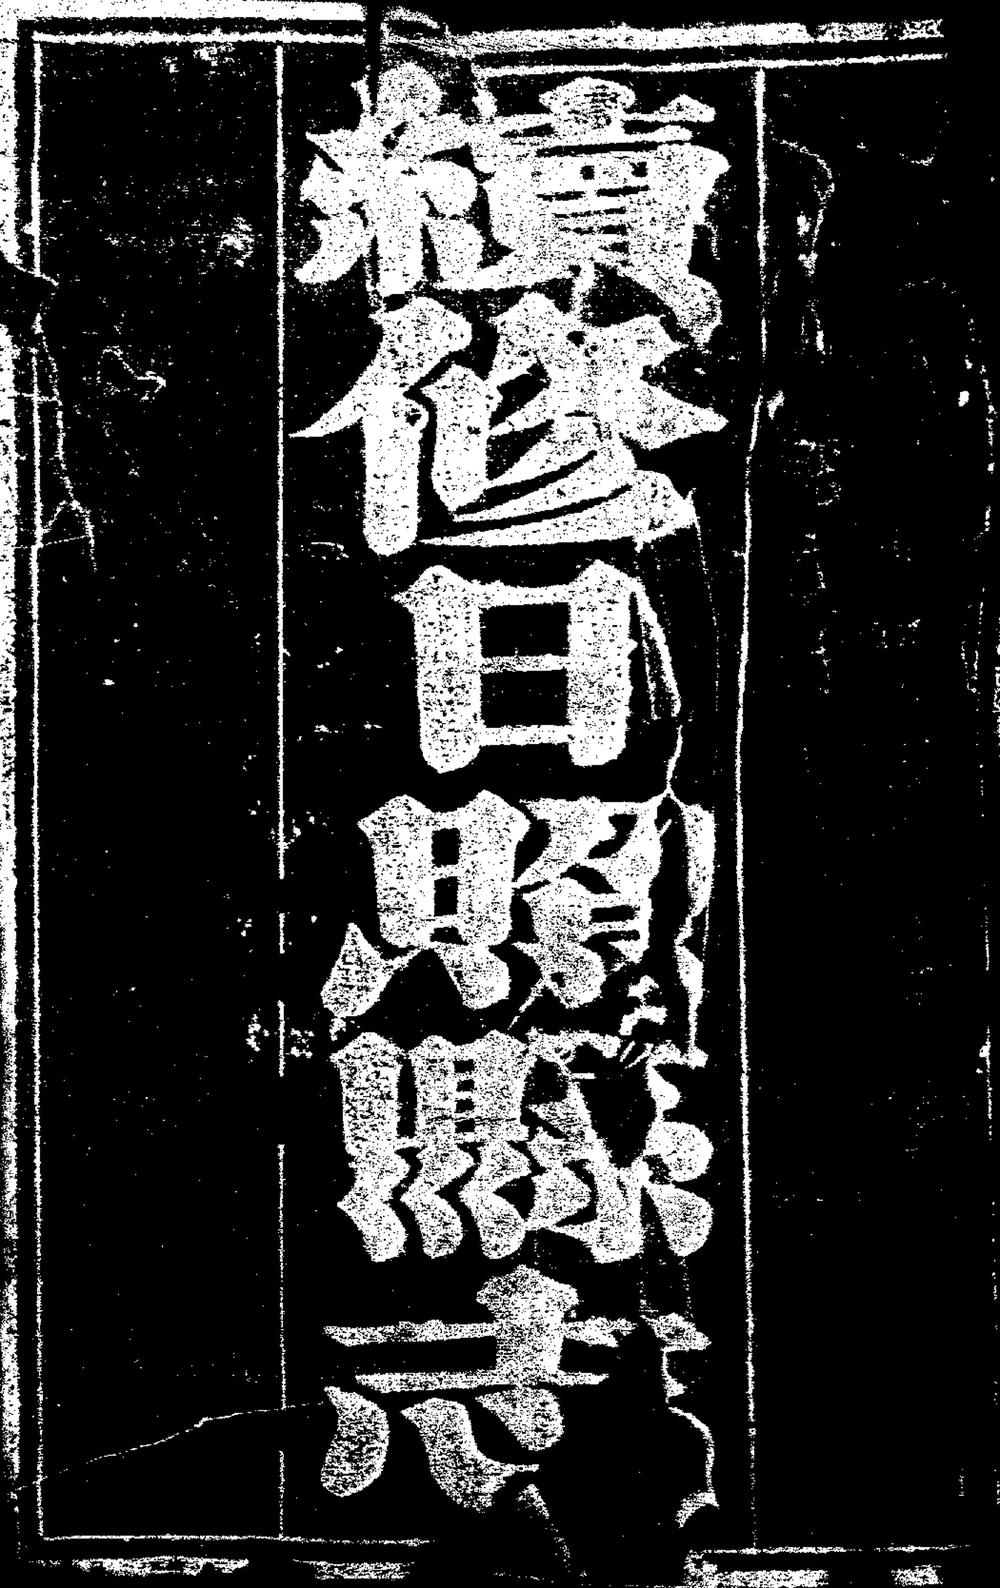 續修日照縣志